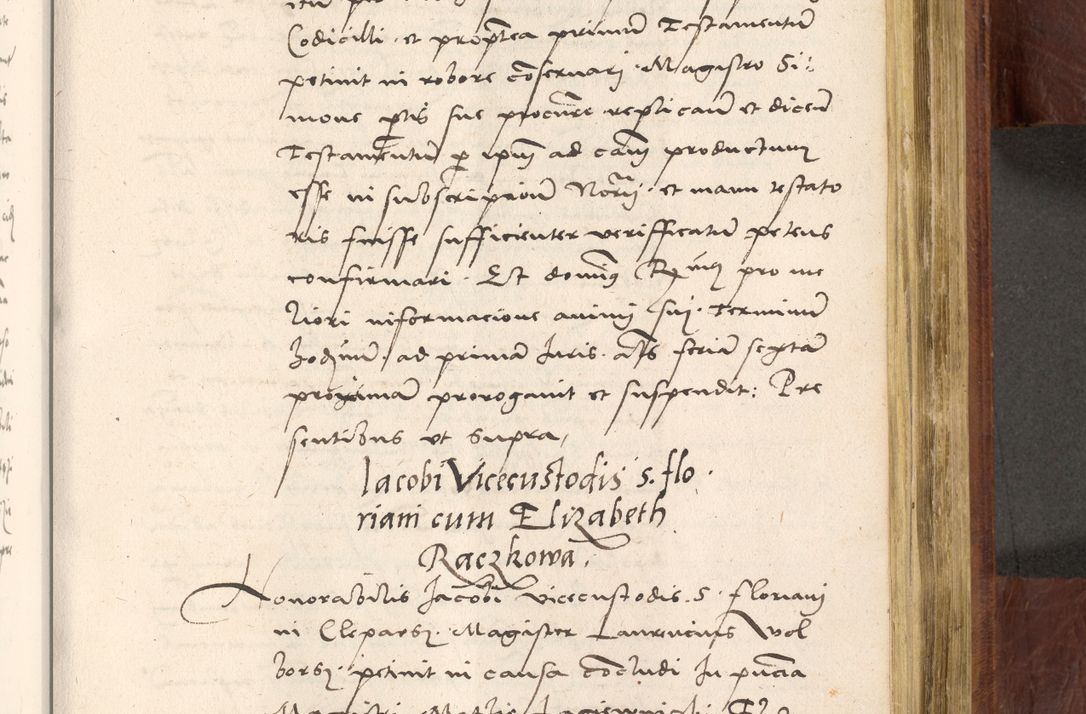 Codicilli et propterea primum Testamentum
petiuit in robore conseruari. Magistro Si:
mone partis sue procuratore replicante et dicente
Testamentum per ipsum ad causam productum
esse in subscriptione Notarij. et manu testato
ris fuisse sufficienter verifficatum petens
confirmari. Et dominus pro me
liori informacione animi sui. Terminum
hodiernum ad primam Iuris. actis feriam sextam
proximam prorogauit et suspendit: Pre
sentibus vt supra,
Iacobi Vicecustodis s. flo
riani cum Elizabeth
Raczkowa.
Honorabilis Jacobi vicecustodis. S. floriani
in Cleparsz. Magister Laurencius Wol
borsz. petiuit in causa concludi In puncta